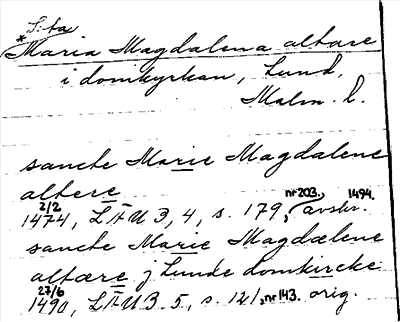 S:ta
*Maria Magdalena altare
i domkyrkan, Lund,
Malm. l.
sancte Marie Magdalene
altere
2/2 nr 203., 1494.
1474, LÄU 3, 4, s. 179, avskr.
sancte Marie Magdalene
altære j Lunde domkircke
27/6
1490, LÄU 3. 5, s. 121, nr 143. orig.